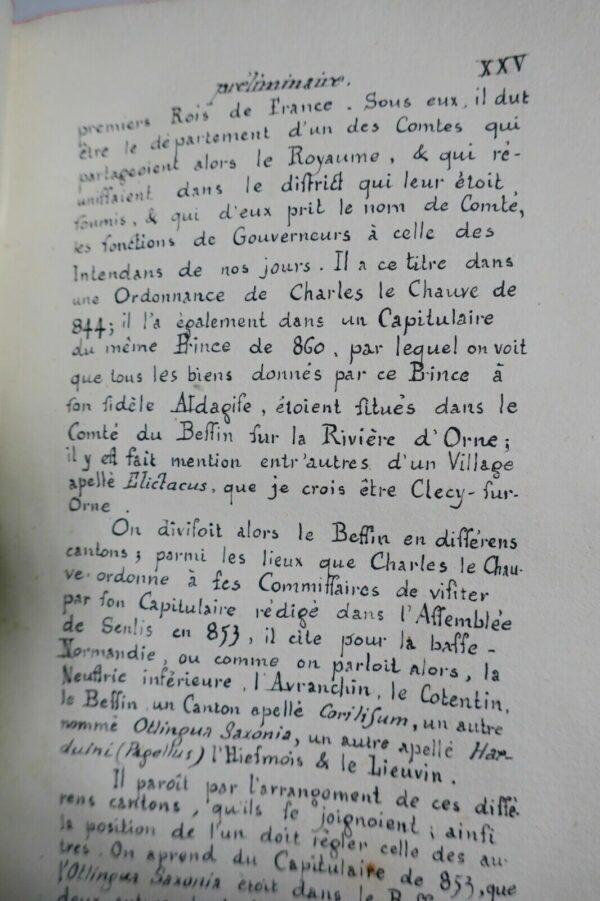 préliminaire. XXV
premiers Rois de France. Sous eux, il dut
être le département d'un des Comtes qui
partageoient alors le Royaume, & qui ré-
uniſſaient dans le diſtrict qui leur étoit
ſoumis, & qui d'eux prit le nom de Comté,
les fonctions de Gouverneurs à celle des
Intendans de nos jours. Il a ce titre dans
une Ordonnance de Charles le Chauve de
844; il l'a également dans un Capitulaire
du même Prince de 860, par lequel on voit
que tous les biens donnés par ce Prince à
ſon fidèle Aldagiſe, étoient ſitués dans le
Comté du Beſſin ſur la Rivière d'Orne;
il y eſt fait mention entr'autres d'un Village
apellé Elictacus, que je crois être Clecy-ſur-
Orne.
On diviſoit alors le Beſſin en différens
cantons; parmi les lieux que Charles le Chau-
ve ordonne à ſes Commiſſaires de viſiter
par ſon Capitulaire rédigé dans l'Aſſemblée
de Senlis en 853, il cite pour la baſſe-
Normandie, ou comme on parloit alors, la
Neuſtrie inférieure, l'Avranchin, le Cotentin,
le Beſſin un Canton apellé Coriliſum, un autre
nommé Otlingua Saxonia, un autre apellé Har-
duini (Pagellus) l'Hieſmois & le Lieuvin.
Il paroît par l'arrangement de ces diffé
rens cantons, qu'ils ſe joignoient; ainſi
la position de l'un doit règler celle des au-
tres. On aprend du Capitulaire de 853, que
l'Otlingua Saxonia étoit dans le